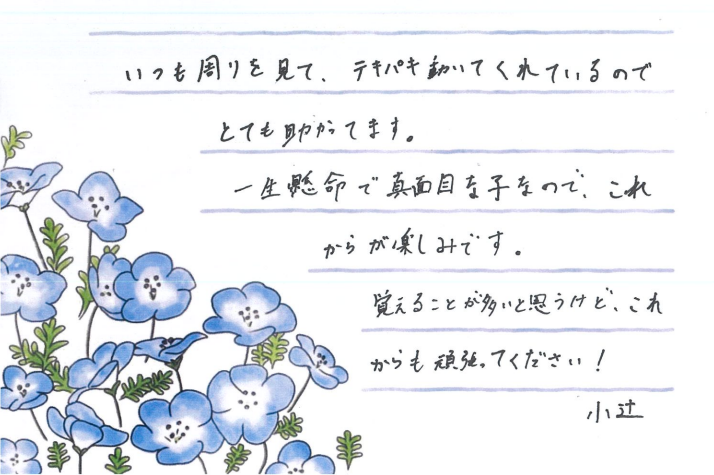 いつも周りを見て、テキパキ動いてくれているので
とても助かってます。
一生懸命で真面目な子なので、これ
からが楽しみです。
覚えることが多いと思うけど、これ
からも頑張ってください！
小辻